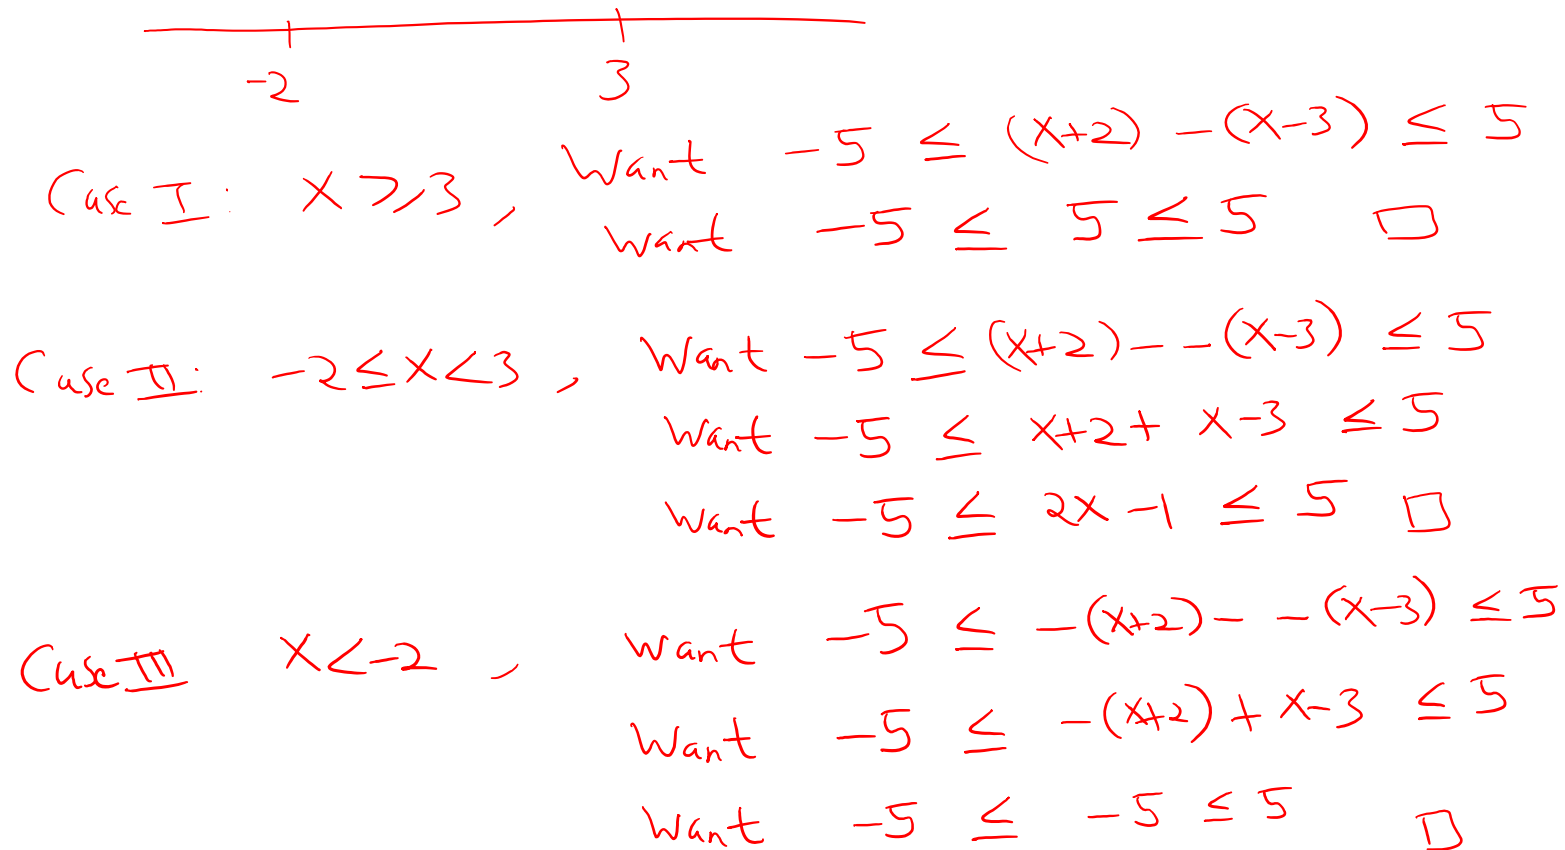 -2 3
Case I: x ≥ 3, Want -5 ≤ (x+2) - (x-3) ≤ 5
Want -5 ≤ 5 ≤ 5 □
Case II: -2 ≤ x < 3, Want -5 ≤ (x+2) - - (x-3) ≤ 5
Want -5 ≤ x+2 + x-3 ≤ 5
Want -5 ≤ 2x - 1 ≤ 5 □
Case III x < -2, Want -5 ≤ -(x+2) - - (x-3) ≤ 5
Want -5 ≤ -(x+2) + x-3 ≤ 5
Want -5 ≤ -5 ≤ 5 □